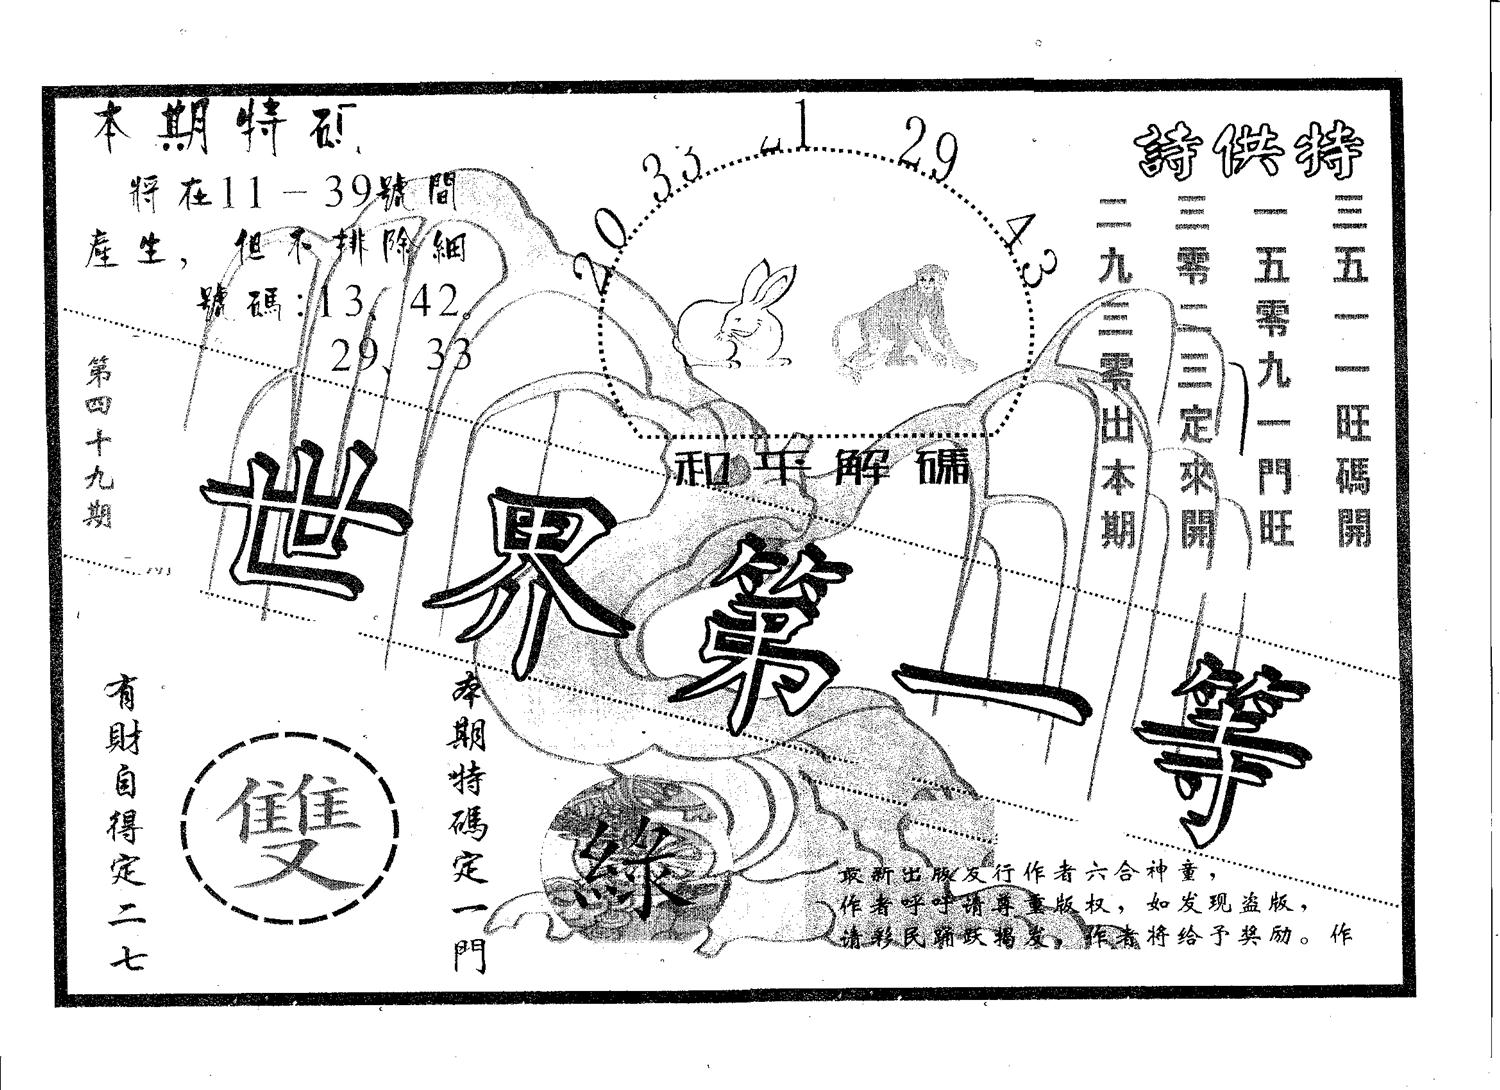 本期特碼
將在11－39號間
產生，但不排除細
號碼：13、42。
29、33
第四十九期
20
33
1
29
43
和平解碼
特供詩
三五一一旺碼開
一五零九一門旺
三零二三定來開
二九三零出本期
世界第一等
有財自得定二七
雙
本期特碼定一門
綠
最新出版发行作者六合神童，
作者呼吁請尊重版权，如发现盗版，
请彩民踊跃揭发，作者将给予奖励。作